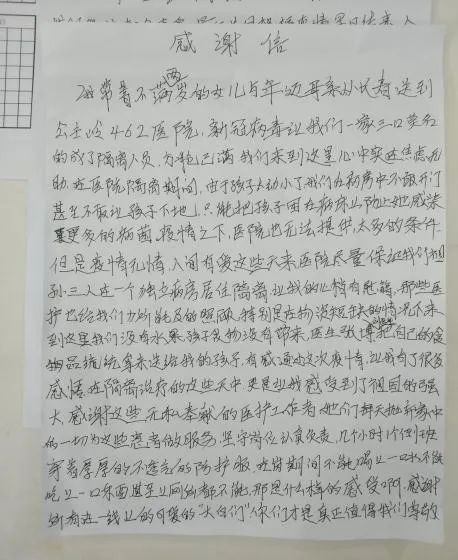 感谢信
我带着不满两岁的女儿与年迈母亲从长春送到
公主岭462医院,新冠病毒让我们一家三口莫名
的成了隔离人员,为 已满 我们来到这里心中实在焦虑无
助,在医院隔离期间,由于孩子太小了我们在病房中不敢开门
甚至不敢让孩子下地,只能把孩子困在病床上防止她感染
更多的病菌,疫情之下,医院也无法提供太多的条件
但是疫情无情,人间有爱这些天来医院尽量保证我们祖
孙三人在一个独立病房居住隔离让我的心稍有慰藉,那些医
护也给我们力所能及的照顾,特别是在物资短缺的情况下来
到这里我们没有水果孩子食物没有带来,医生 把自己的食
品 拿来送给我的孩子,有感通过这次疫情,让我有了很多
感悟在隔离治疗的这些天中更是让我感受到了祖国的强
大,感谢这些无私奉献的医护工作者她们每天抛弃家中
的一切为这些患者做服务,坚守岗位认真负责,几个小时1个倒班
穿着厚厚的不透气的防护服,在岗期间不能喝上一口水不能
吃上一口东西甚至上厕所都不能,那是什么样的感受啊,感谢
所有在一线上的可爱的“大白们”你们才是真正值得我们尊敬